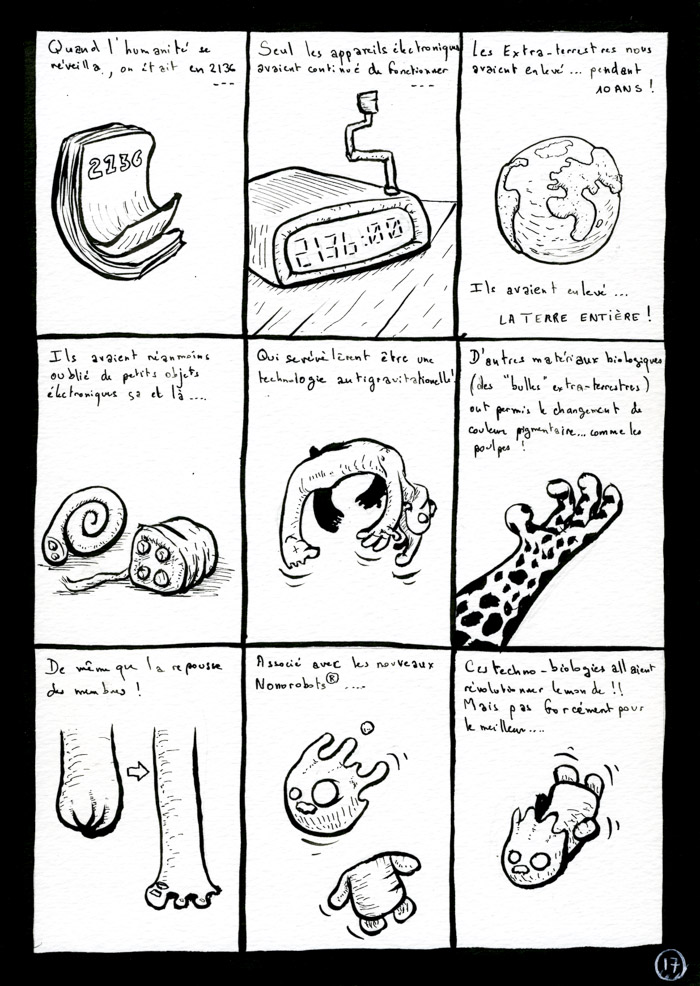 Quand l'humanité se
réveilla, on était en 2136
---
2136
Seul les appareils électroniques
avaient continué de fonctionner
---
2136:00
Les Extra-terrestres nous
avaient enlevé... pendant
10 ANS !
Ils avaient enlevé...
LA TERRE ENTIÈRE !
Ils avaient néanmoins
oublié de petits objets
électroniques ça et là....
Qui se révélèrent être une
technologie antigravitationelle !
D'autres matériaux biologiques
(des "bulles" extra-terrestres)
ont permis le changement de
couleur pigmentaire... comme les
poulpes !
De même que la repousse
des membres !
Associé avec les nouveaux
Nonorobots® ....
Ces techno-biologies allaient
révolutionner le monde !!
Mais pas forcément pour
le meilleur....
17